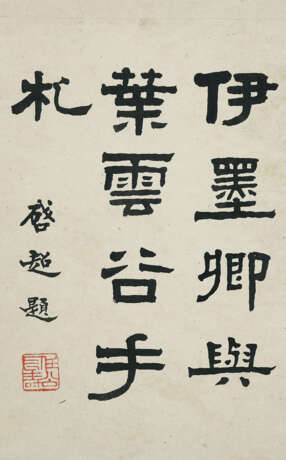 伊墨卿與
葉雲谷手
札
啓超題